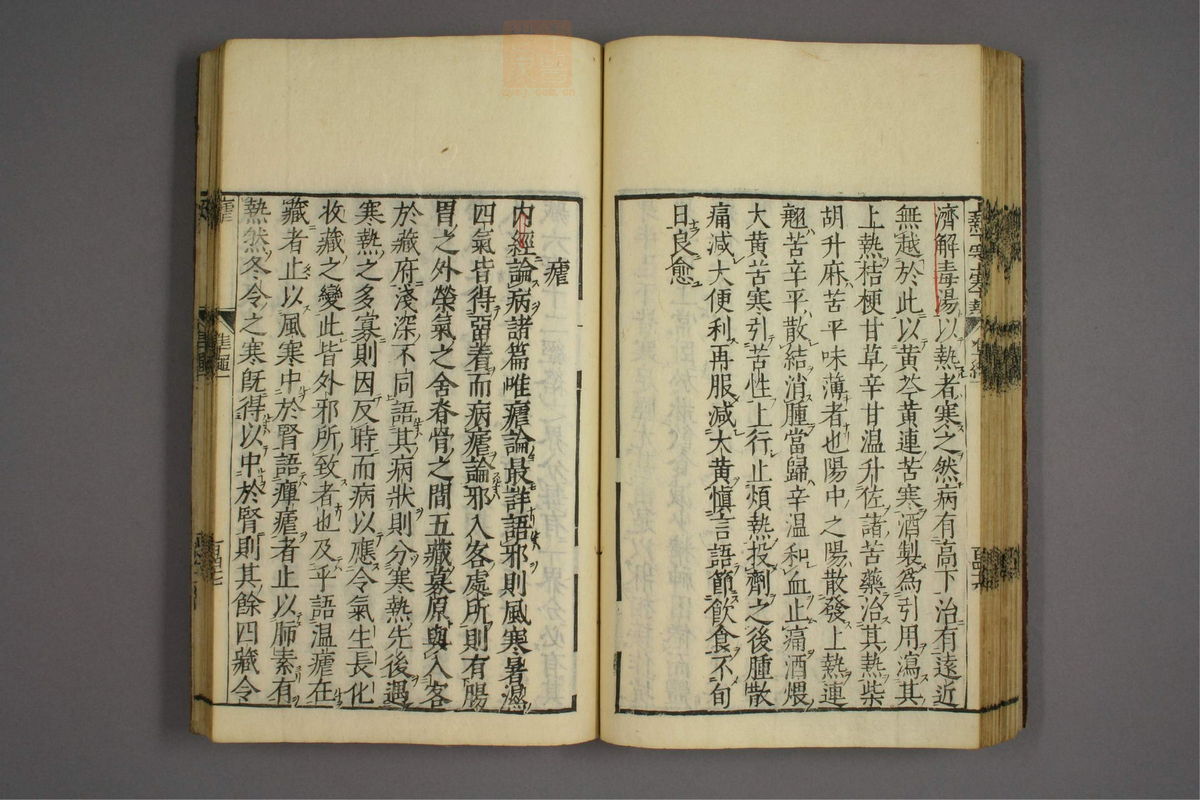 濟解毒湯以熱者寒之然病有高下治有遠近
無越於此以黃芩黃連苦寒酒製為引用瀉其
上熱桔梗甘草辛甘温升佐諸苦藥治其熱柴
胡升麻苦平味薄者也陽中之陽散發上熱連
翹苦辛平散結消腫當歸辛温和血止痛酒煨
大黃苦寒引苦性上行止煩熱投劑之後腫散
痛減大便利再服減大黃愼言語節飲食不旬
日良愈
瘧
内經論病諸篇唯瘧論最詳語邪則風寒暑濕
四氣皆得畱着而病瘧論邪入客處所則有腸
胃之外榮氣之舍脊骨之間五藏募原與入客
於藏府淺深不同語其病狀則分寒熱先後遇
寒熱之多寡則因反時而病以應令氣生長化
收藏之變此皆外邪所致者也及乎語温瘧在
藏者止以風寒中於腎語癉瘧者止以肺素有
熱然冬令之寒旣得以中於腎則其餘四藏令
瘧
準繩